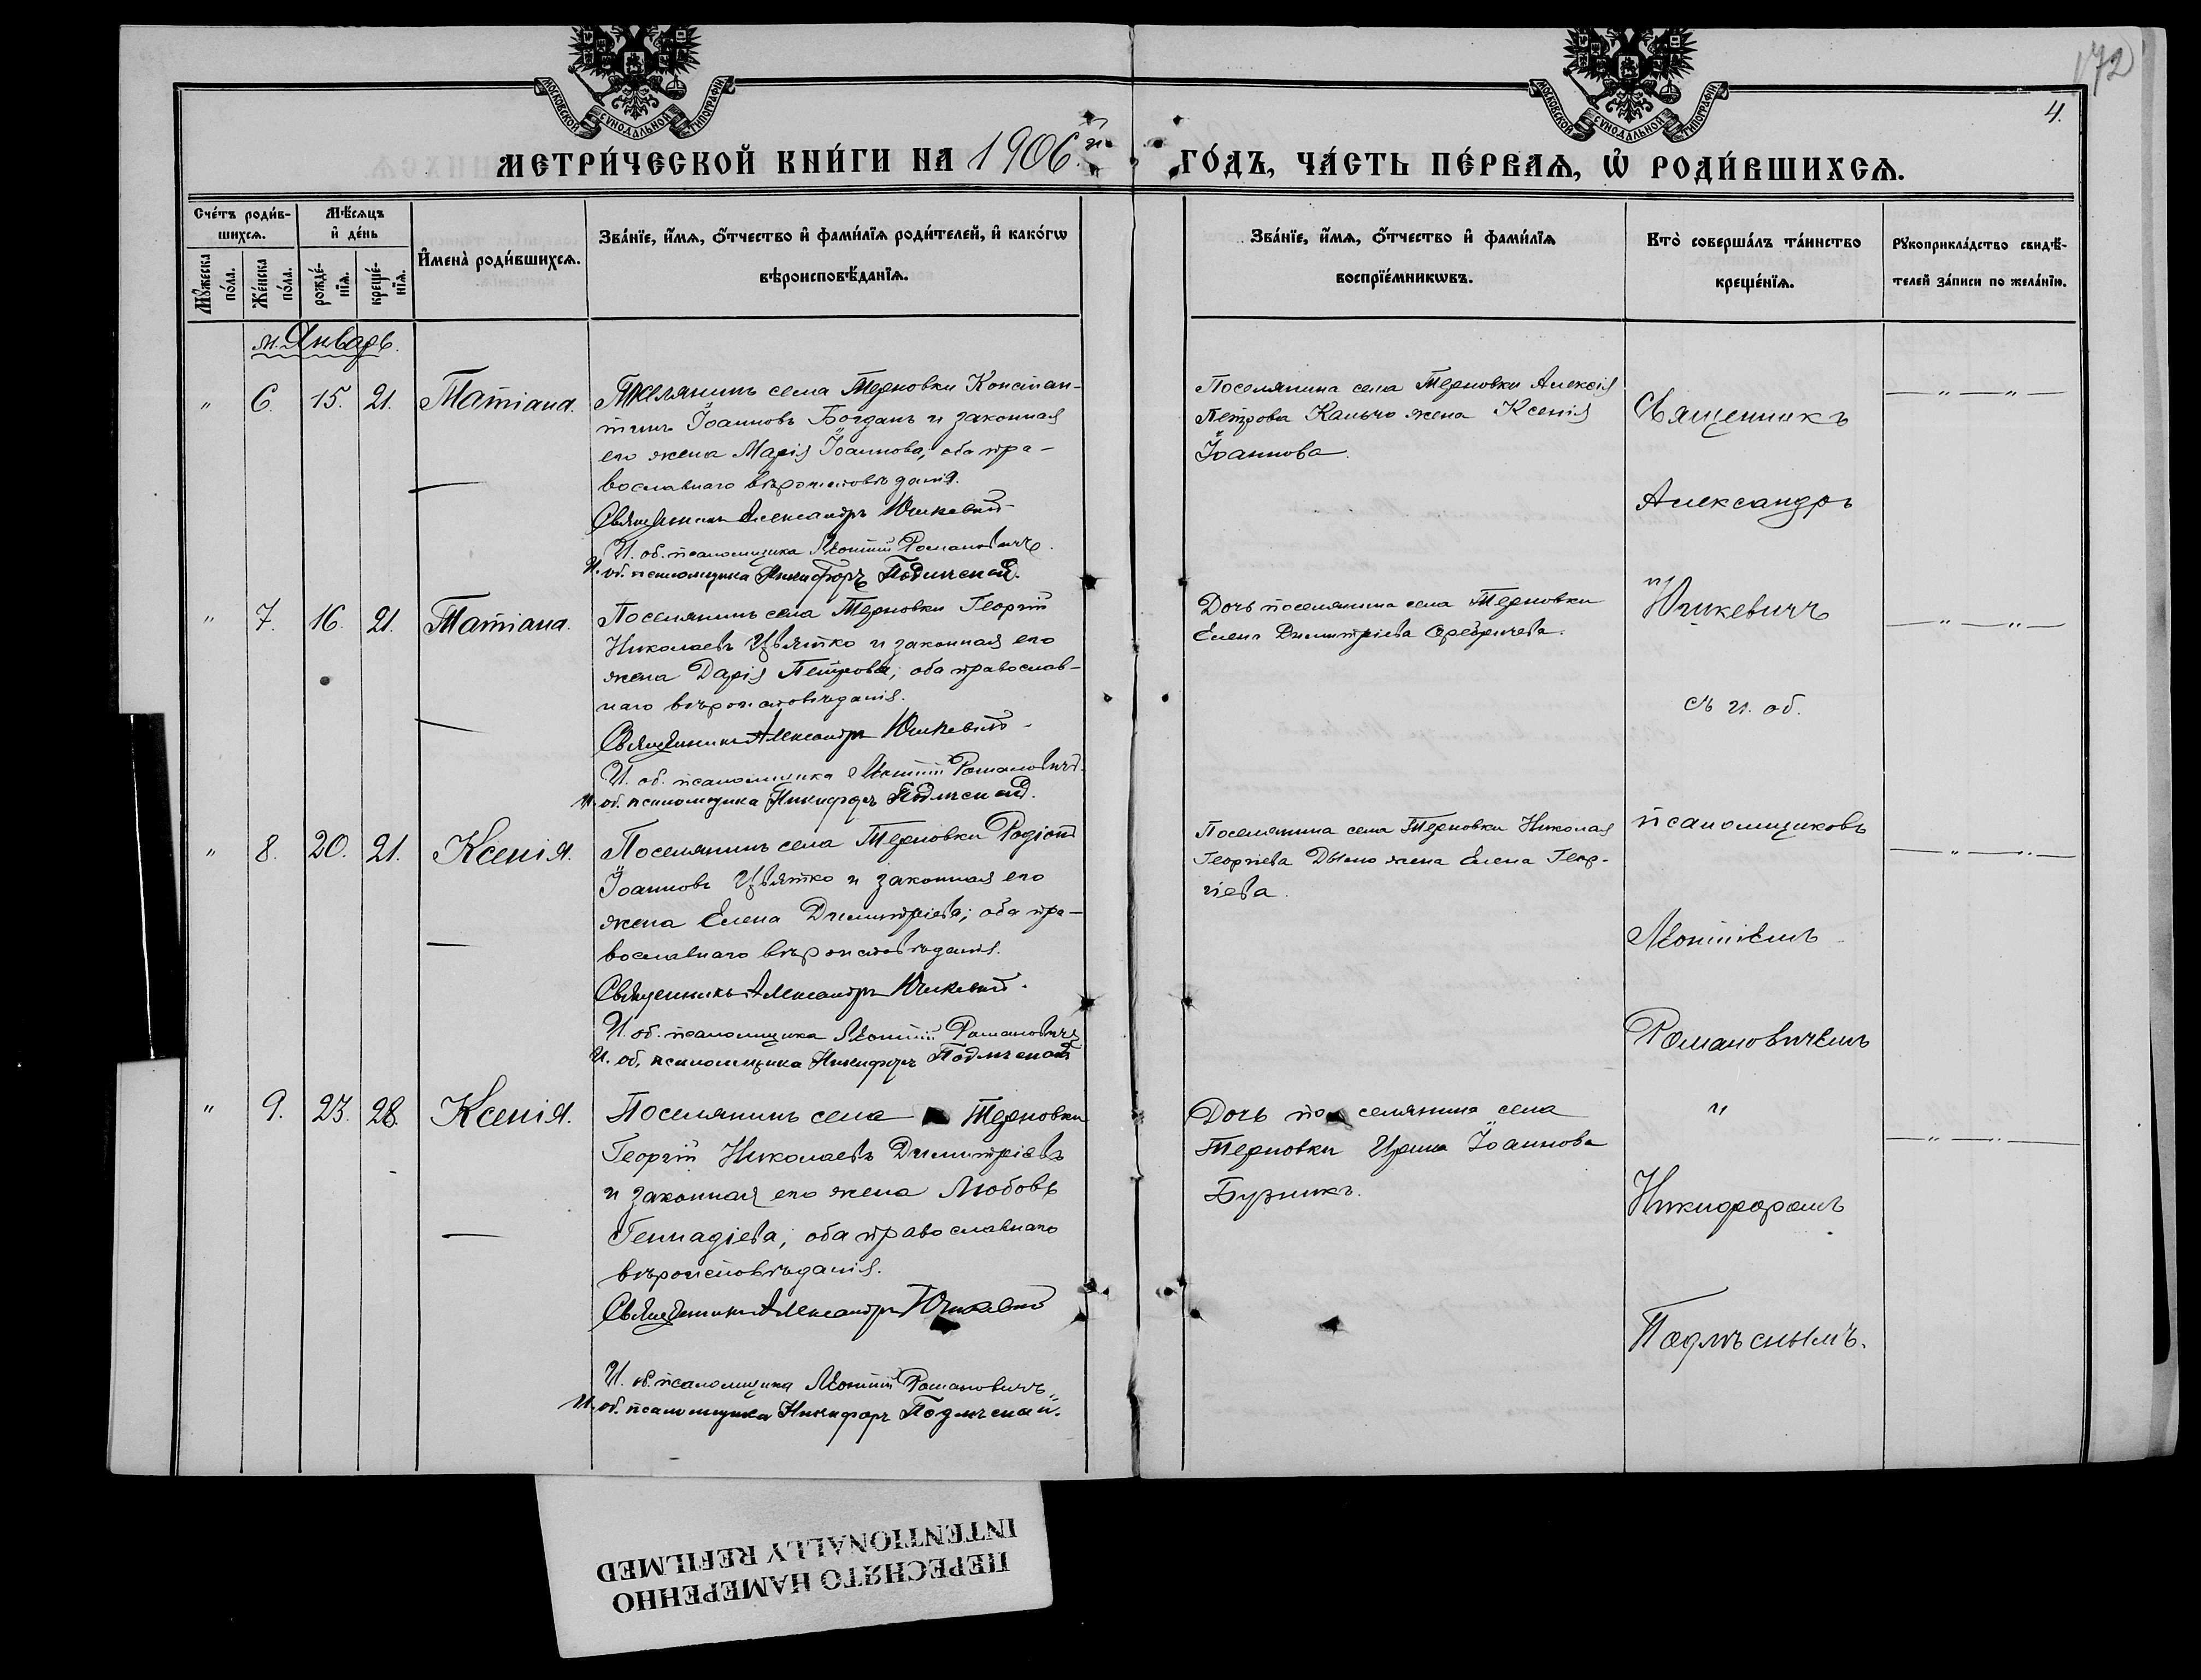 172
4.
МОСКОВСКОЙ СУНОДАЛЬНОЙ ТИПОГРАФІИ
МОСКОВСКОЙ СУНОДАЛЬНОЙ ТИПОГРАФІИ
МЕТРИ́ЧЕСКОЙ КНИ́ГИ НА 1906. й ГО́ДЪ, ЧА́СТЬ ПЕ́РВАѦ, Ѽ РОДИ́ВШИХСѦ.
Сче́тъ роди́в-
шихсѧ.
Мꙋ́жеска по́ла.
Же́нска по́ла.
Мѣ́сѧцъ
и҆ де́нь
рожде́-
нїѧ.
креще́-
нїѧ.
И҆мена̀ роди́вшихсѧ.
Зва́нїе, и҆́мѧ, ѻ҆́тчество и҆ фами́лїѧ роди́телей, и҆ како́гѡ
вѣроисповѣ́данїѧ.
Зва́нїе, и҆́мѧ, ѻ҆́тчество и҆ фами́лїѧ
воспрїе́мникѡвъ.
Кто̀ соверша́лъ та́инство
креще́нїѧ.
Рꙋкоприкла́дство свидѣ́-
телей за́писи по жела́нїю.
м. Январь.
" 6. 15. 21. Татіана.
Поселянинъ села Терновки Констан-
тинъ Іоанновъ Богданъ и законная
его жена Марія Іоаннова, оба пра-
вославнаго вѣроисповѣданія.
Священникъ Александръ Юшкевичъ
И. об. псаломщика Леонтій Романовичъ.
И. об. псаломщика Никифоръ Подлѣсный.
Поселянина села Терновки Алексія
Петрова Калычо жена Ксенія
Іоаннова.
" 7. 16. 21. Татіана.
Поселянинъ села Терновки Георгій
Николаевъ Цвятко и законная его
жена Дарія Петрова, оба православ-
наго вѣроисповѣданія.
Священникъ Александръ Юшкевичъ
И. об. псаломщика Леонтій Романовичъ.
И. об. псаломщика Никифоръ Подлѣсный.
Дочь поселянина села Терновки
Елена Димитріева
" 8. 20. 21. Ксенія.
Поселянинъ села Терновки Родіонъ
Іоанновъ Цвятко и законная его
жена Елена Димитріева; оба пра-
вославнаго вѣроисповѣданія.
Священникъ Александръ Юшкевичъ.
И. об. псаломщика Леонтій Романовичъ
И. об. псаломщика Никифоръ Подлѣсный
Поселянина села Терновки Николая
Георгіева жена Елена Геор-
гіева.
" 9. 23. 28. Ксенія.
Поселянинъ села Терновки
Георгій Николаевъ Димитріевъ
и законная его жена Любовь
Геннадіева; оба православнаго
вѣроисповѣданія.
Священникъ Александръ Юшкевичъ
И. об. псаломщика Леонтій Романовичъ.
И. об. псаломщика Никифоръ Подлѣсный.
Дочь поселянина села
Терновки Ирина Іоаннова
Бузникъ.
Священникъ
Александръ
Юшкевичъ
съ и. об.
псаломщиковъ
Леонтіемъ
Романовичемъ
и
Никифоромъ
Подлѣснымъ.
ПЕРЕСНЯТО НАМЕРЕННО
INTENTIONALLY REFILMED